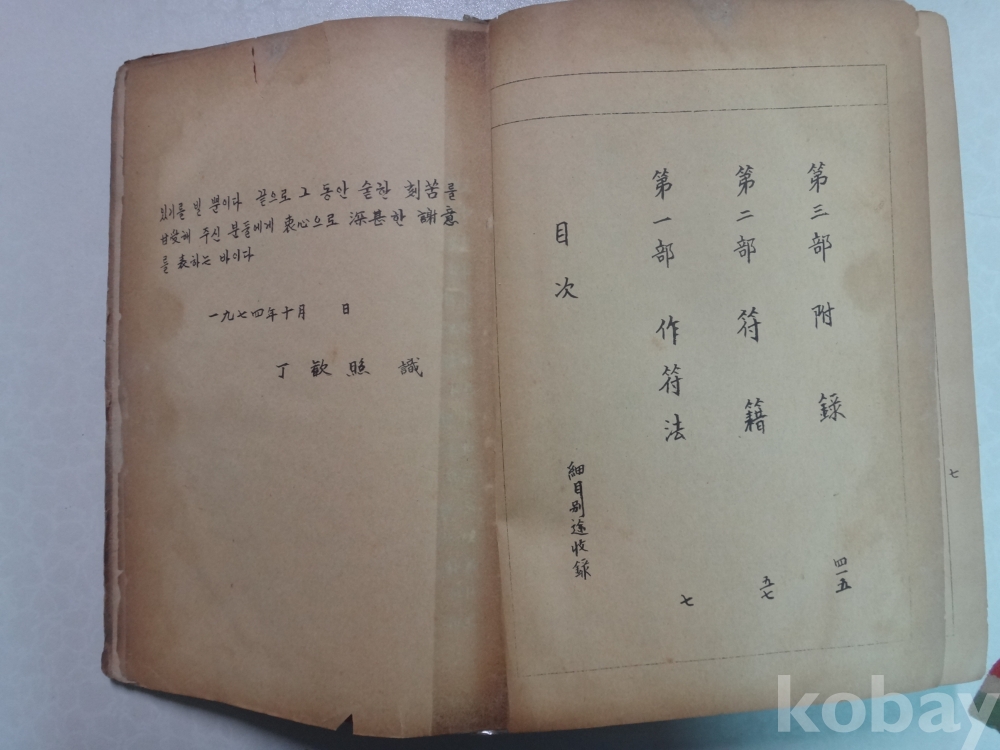 있기를 빌 뿐이다 끝으로 그 동안 숱한 刻苦를
甘受해 주신 분들에게 衷心으로 深甚한 謝意
를 表하는 바이다
一九七四年十月 日
丁歡照 識
目次
細目別途收録
第一部 作符法 七
第二部 符籍 五七
第三部 附錄 四一五
七
kobay